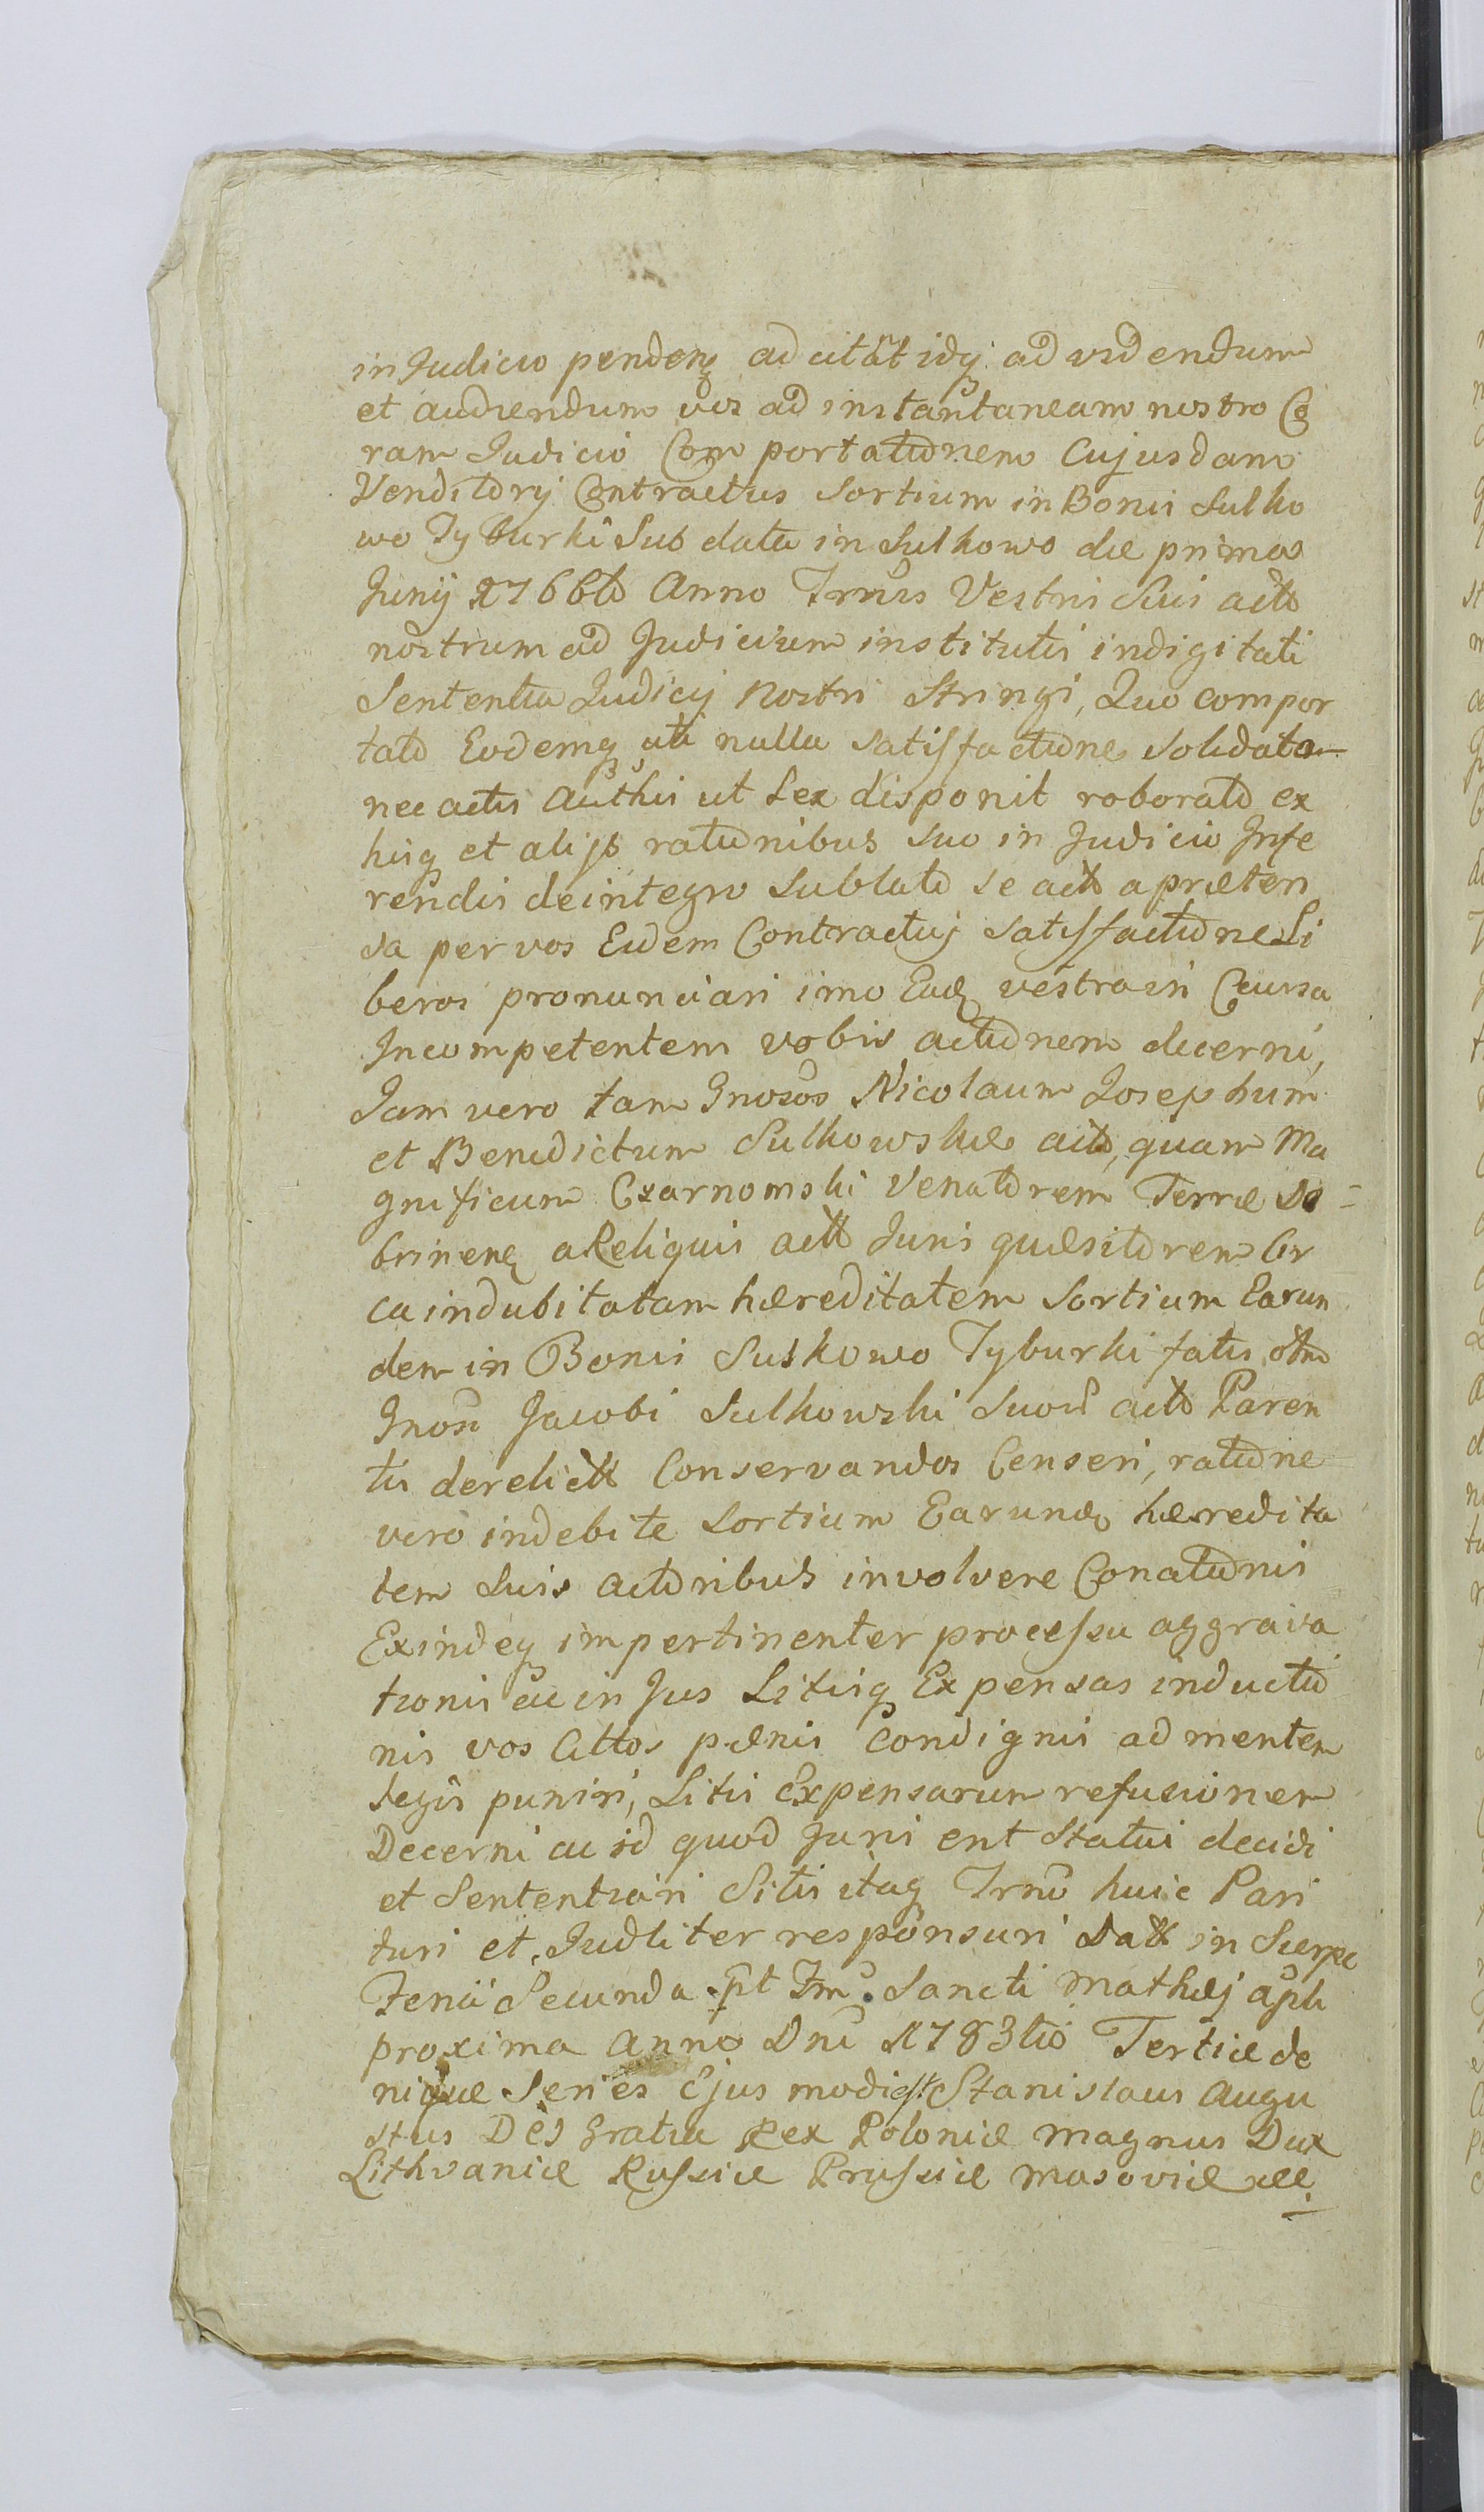 in Judicio pendenq adcitat idq. ad videndum
et audiendum vos ad instantaneam nostro Co
ram Judicio Comportationem Cujusdam
Venditorij Contractus Sortium in Bonis Sulko
wo Tyburki Sub data in Sulkowo die prima
Junij 1766to Anno Trnis Vestri Sui actto
nostrum ad Judicium institutis indigitati
Sententia Judicij Nostri Stringi, Quo compor
tato Eodemq uti nulla satisfactione solidato
nec actis Authis ut Lex disponit roborato ex
hisq et alijs rationibus suo in Judicio Infe
rendis deintegro Sublato se actto a præten
sa per vos Eidem Contractuj satisfactione Li
beros pronunciari imo Eadq vestra in Causa
Incompetentem vobis actionem decerni,
Jam vero tam Gnosos Nicolaum Josephum
et Benedictum Sulkowskie actto, quam Ma
gnificum Czarnomski Venatorem Terræ Do=
brinenq a Reliquis actt Juris quæsitorem Cir
ca indubitatam hæreditatem Sortium Earun
dem in Bonis Sulkowo Tyburki fatis otm
Gnosi Jacobi Sulkowski Suor actto Paren
tis derelictt Conservandos Censeri, ratione
vero indebite Sortium Earundq hæredita
tem Suis actoribus involvere Conationis
Exindeq impertinenter processu aggrava
tionis ac in Jus Litisq Expensas inductio
nis vos Cittos pænis condignis ad mentem
legis puniri, Litis Expensarum refusionem
Decerni ac id quod Juris erit Statui decidi
et Sententiari Sitis itaq Trno huic Pari
turi et Judliter responsuri Datt in Sierpc
Feria Secunda pt Fm Sancti Mathæj apli
proxima Anno Dni 1783tio Tertiæ de
nique Series Ejus modi est Stanislaus Augu
stus Dei Gratia Rex Poloniæ Magnus Dux
Lithvaniæ Russiæ Prussiæ Masoviæ